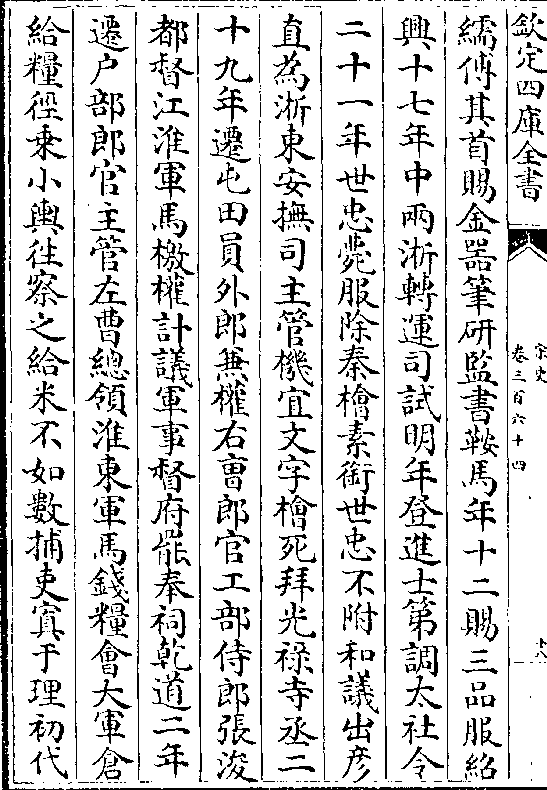 欽定四庫全書
宋史
卷三百六十四
十六
繻傅其首賜金器筆研監書鞍馬年十二賜三品服紹
興十七年中兩浙轉運司試明年登進士第調太社令
二十一年世忠薨服除秦檜素銜世忠不附和議出彥
直為浙東安撫司主管機宜文字檜死拜光祿寺丞二
十九年遷屯田員外郎兼權右曹郎官工部侍郎張浚
都督江淮軍馬檄權計議軍事督府罷奉祠乾道二年
遷户部郎官主管左曹總領淮東軍馬錢糧會大軍倉
給糧徑乘小輿往察之給米不如數捕吏寘于理初代